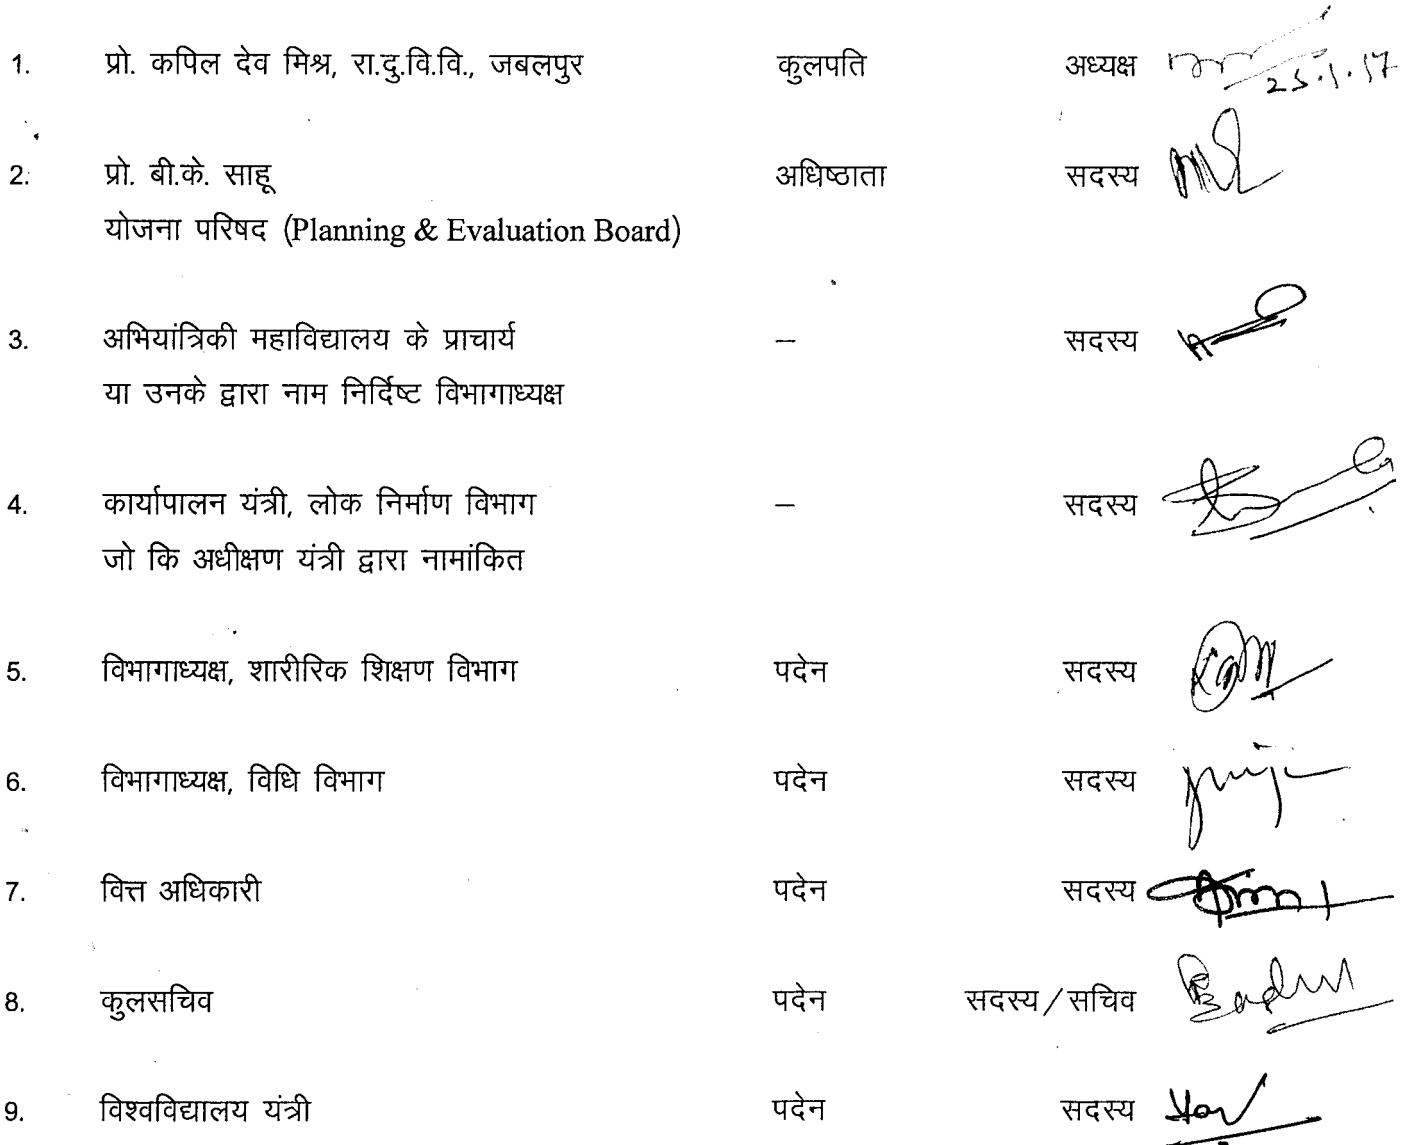 1. प्रो. कपिल देव मिश्र, रा.दु.वि.वि., जबलपुर कुलपति अध्यक्ष
25.1.17
2. प्रो. बी.के. साहू अधिष्ठाता सदस्य
योजना परिषद (Planning & Evaluation Board)
3. अभियांत्रिकी महाविद्यालय के प्राचार्य – सदस्य
या उनके द्वारा नाम निर्दिष्ट विभागाध्यक्ष
4. कार्यापालन यंत्री, लोक निर्माण विभाग – सदस्य
जो कि अधीक्षण यंत्री द्वारा नामांकित
5. विभागाध्यक्ष, शारीरिक शिक्षण विभाग पदेन सदस्य
6. विभागाध्यक्ष, विधि विभाग पदेन सदस्य
7. वित्त अधिकारी पदेन सदस्य
8. कुलसचिव पदेन सदस्य/सचिव
9. विश्वविद्यालय यंत्री पदेन सदस्य